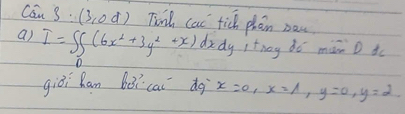 Câu 3: (3,0đ) Tính các tích phân sau
a) I = ∬_D (6x² + 3y² + x) dxdy, trong đó miền D đc
giới hạn bởi các đg x = 0, x = 1, y = 0, y = 2